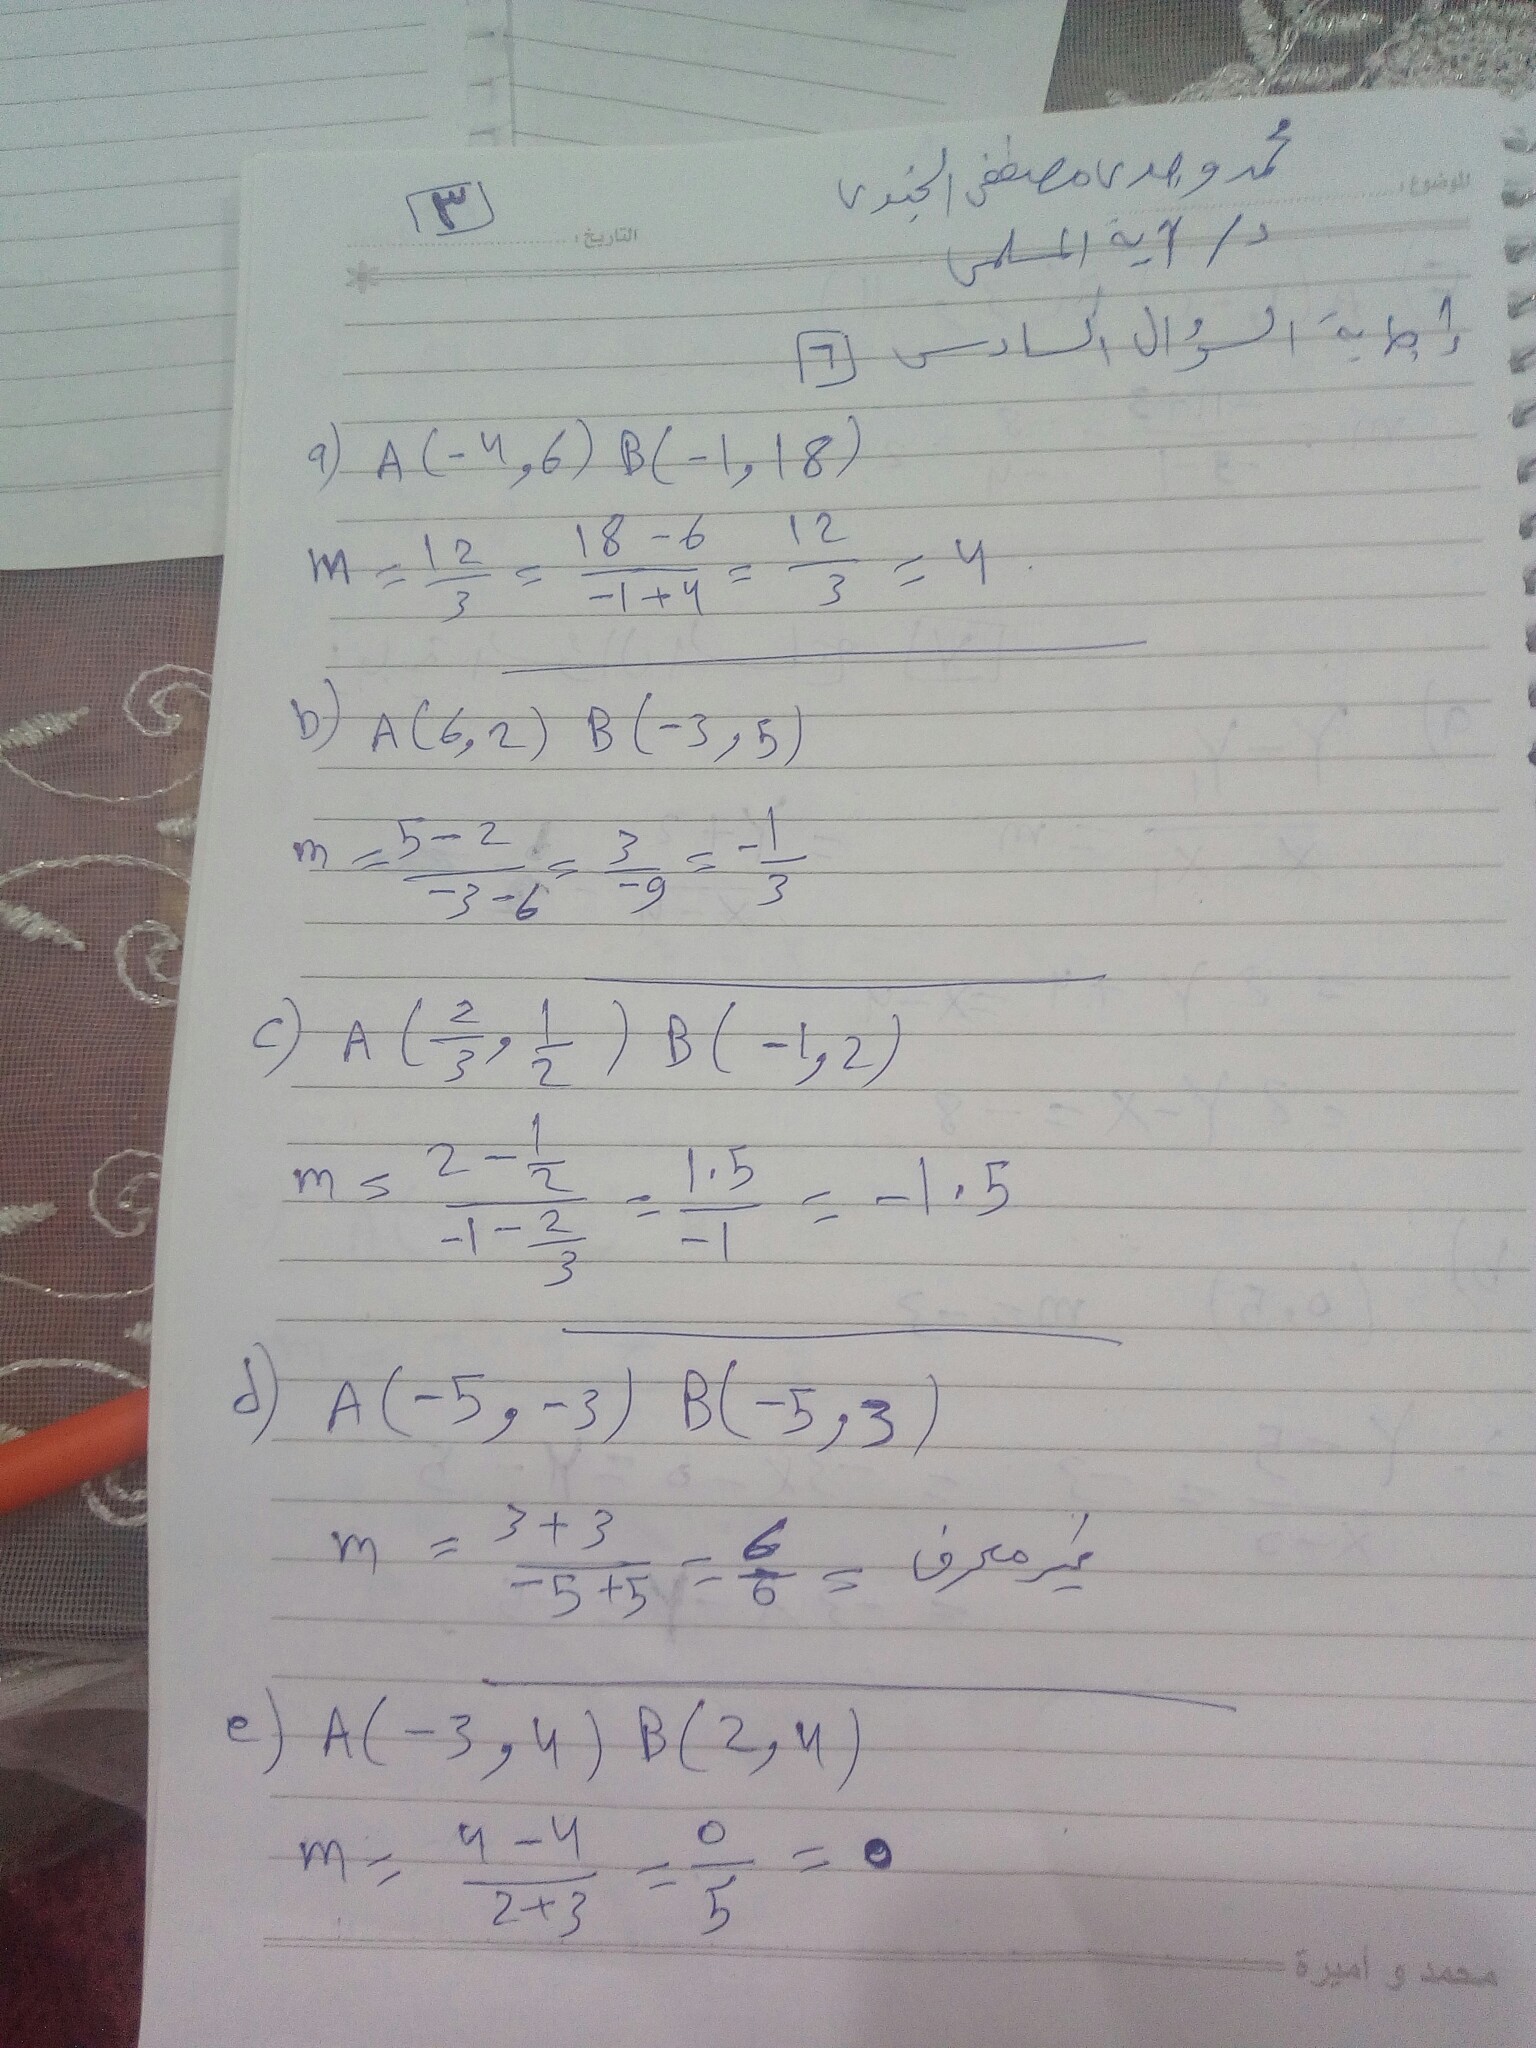 محمد وجدى مصطفى الجندى
الموضوع:
[٣]
التاريخ:
د/ آية المسلمى
إجابة السؤال السادس [٦]
a) A(-4,6) B(-1,18)
m = 12/3 = (18-6)/(-1+4) = 12/3 = 4
b) A(6,2) B(-3,5)
m = (5-2)/(-3-6) = 3/-9 = -1/3
c) A(2/3, 1/2) B(-1,2)
m = (2-1/2)/(-1-2/3) = 1.5/-1 = -1.5
d) A(-5,-3) B(-5,3)
m = (3+3)/(-5+5) = 6/0 = غير معرف
e) A(-3,4) B(2,4)
m = (4-4)/(2+3) = 0/5 = 0
محمد و أميرة